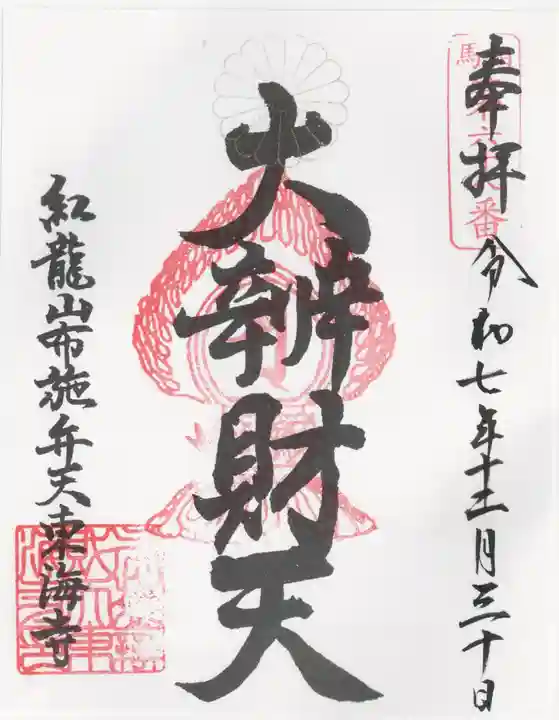 奉拝 令和七年十二月三十日
大辨財天
紅龍山布施弁天東海寺